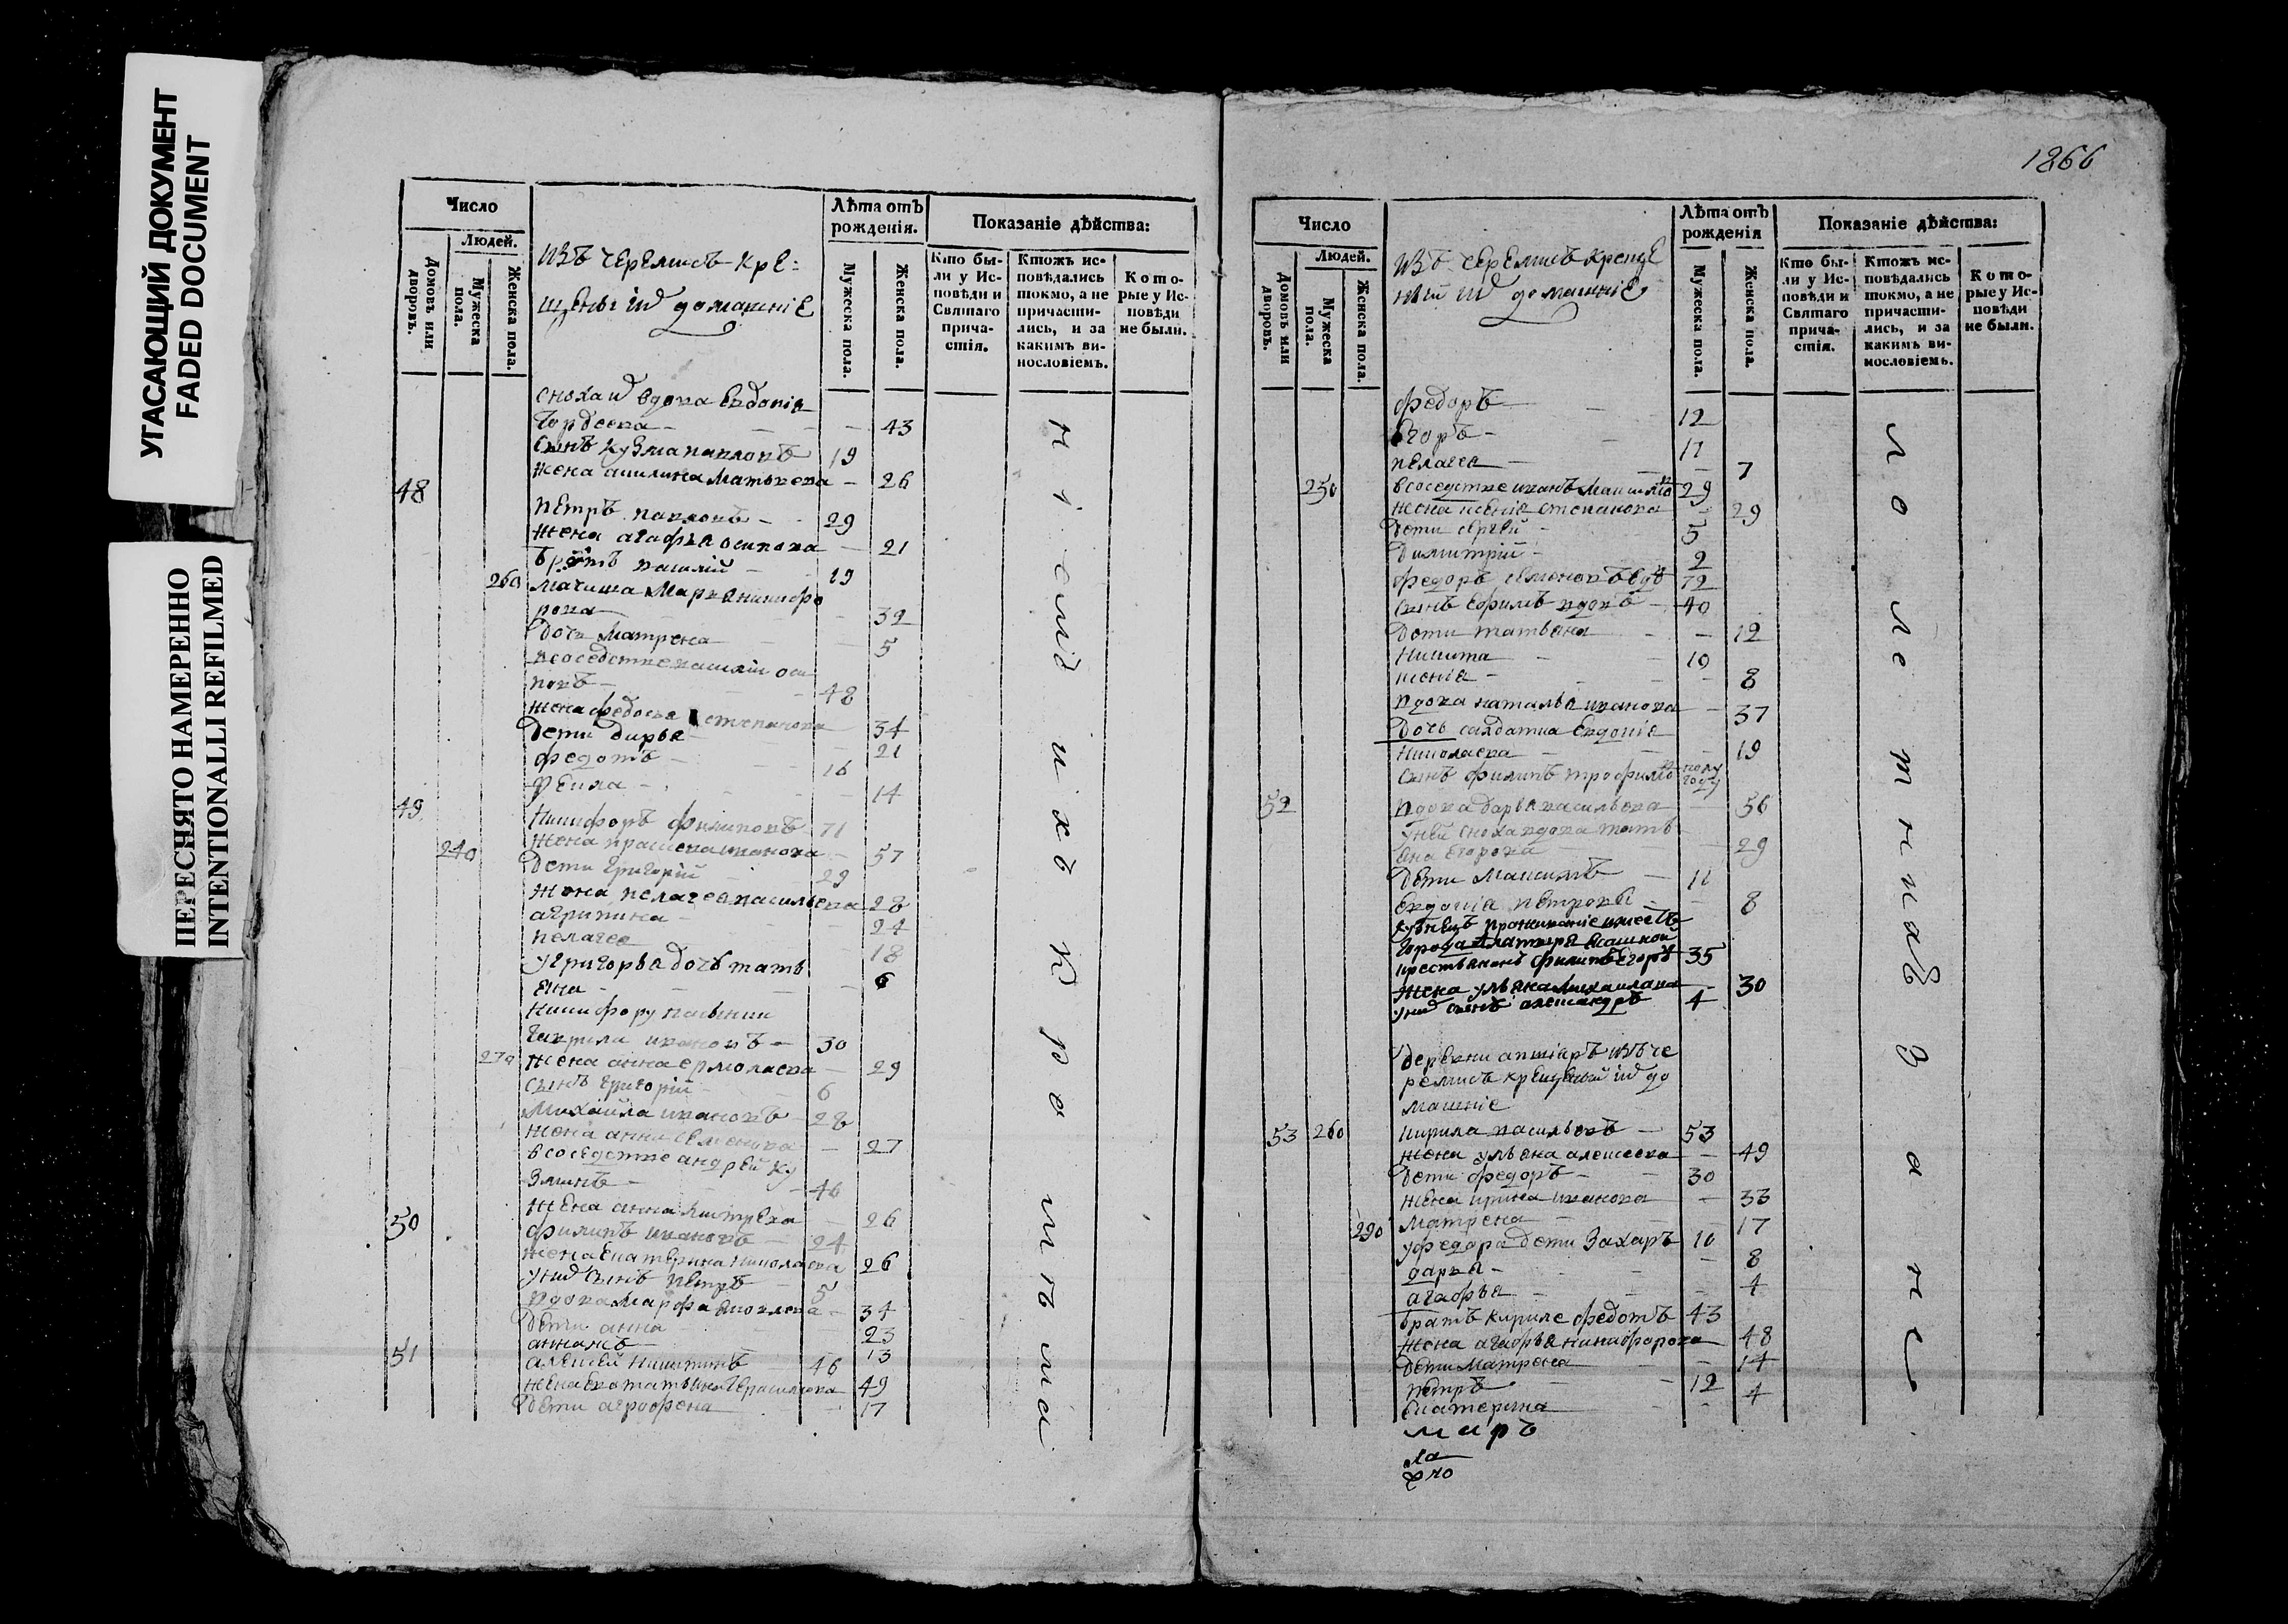 УГАСАЮЩИЙ ДОКУМЕНТ
FADED DOCUMENT
ПЕРЕСНЯТО НАМЕРЕННО
INTENTIONALLI REFILMED
Число
Людей.
Домовъ или дворовъ.
Мужеска пола.
Женска пола.
изъ черемисъ кре=
щены ихъ домашніе
Лѣта отъ рожденія.
Мужеска пола.
Женска пола.
Показаніе дѣйства:
Кто бы-
ли у Ис-
повѣди и
Святаго
прича-
стія.
Ктожъ ис-
повѣдались
токмо, а не
причасти-
лись, и за
какимъ ви-
нословіемъ.
Кото-
рые у Ис-
повѣди
не были.
сноха ихъ вдова Евдокія
Гордеева - 43
Сынъ Кузма павловъ 19
жена Матвеева - 26
48
петръ павловъ - 29
жена агафья осипова - 21
братъ василій - 19
260 мачиха Марья никифо
рова - 32
Дочь Матрена 5
в соседстве василіи оси
повъ - 48
жена федосья степанова 34
дети дарья 21
федотъ - 16
Фекла - 14
49
Никифоръ филиповъ 71
240 жена прасковья иванова - 57
дети Григорій 29
жена пелагея васильева 28
агрипина - 24
пелагея 18
у григорья дочь тать
яна - 6
Никифору пасынки
Гаврила ивановъ - 30
270 жена анна ермолаева - 29
сынъ григорій 6
Михайла ивановъ - 28
жена анна семенова - 27
в соседстве андрей ку
зминъ - 46
жена анна Дмитрева 26
50 филипъ ивановъ - 24
жена Екатерина николаева 26
у нихъ сынъ петръ 5
вдова Марфа яковлева - 34
Дети анна 23
13
51 алексей никитинъ 46
жена 49
Дети агрофена 17
1266
Число
Людей.
Домовъ или дворовъ.
Мужеска пола.
Женска пола.
изъ черемисъ креще
ныи ихъ домашніе
Лѣта отъ рожденія
Мужеска пола.
Женска пола.
Показаніе дѣйства:
Кто бы-
ли у Ис-
повѣди и
Святаго
прича-
стія.
Ктожъ ис-
повѣдались
токмо, а не
причасти-
лись, и за
какимъ ви-
нословіемъ.
Кото-
рые у Ис-
повѣди
не были.
федоръ 12
Егоръ - 11
пелагея - 7
250 в соседстве иванъ Максимовъ 29
жена ксенія степанова - 29
дети сергей 5
Димитрій - 2
федоръ семеновъ вдовъ 72
сынъ ефимъ вдовъ - 40
Дети татьяна - 12
Никита 10
ксенія - 8
вдова наталья иванова - 37
Дочь салдатка Евдокія
Николаева 19
сынъ филипъ трофимовъ полугоду
52 вдова дарья васильева 56
у ней сноха вдова тать
яна Егорова 29
дети Максимъ 11
Евдокія петровы 8
кузнецъ проживаніе имеетъ
города
крестьянинъ филипъ Егоровъ 35
жена ульяна Михаилова - 30
у нихъ сынъ александръ 4
деревни из че
ремисъ крещеныи ихъ до
машніе
53 260 кирила васильевъ - 53
жена ульяна алексеева - 49
дети федоръ - 30
жена ирина иванова - 33
матрена - 17
290 у федора дети Захаръ 10
дарья - 8
агафья 4
братъ кириле федотъ 43
жена агафья никифорова 48
Дети Матрена 14
петръ 12
Екатерина - 4